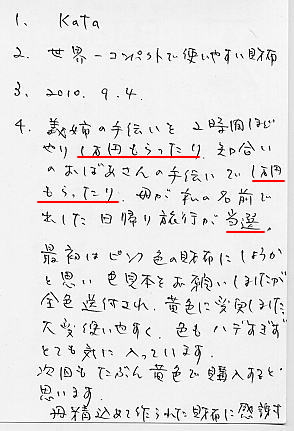 1. Kata
2. 世界一コンパクトで使いやすい財布
3. 2010. 9. 4.
4. 義姉の手伝いを2時間ほど
やり1万円もらったり 知り合い
のおばあさんの手伝いで1万円
もらったり、母が私の名前で
出した日帰り旅行が当選。
最初はピンク色の財布にしようか
と思い色見本をお願いしましたが
全色送付され、黄色に変更しました。
大変使いやすく、色もハデすぎず
とても気に入っています。
次回もたぶん黄色で購入すると
思います。
丹精込めて作られた財布に感謝す